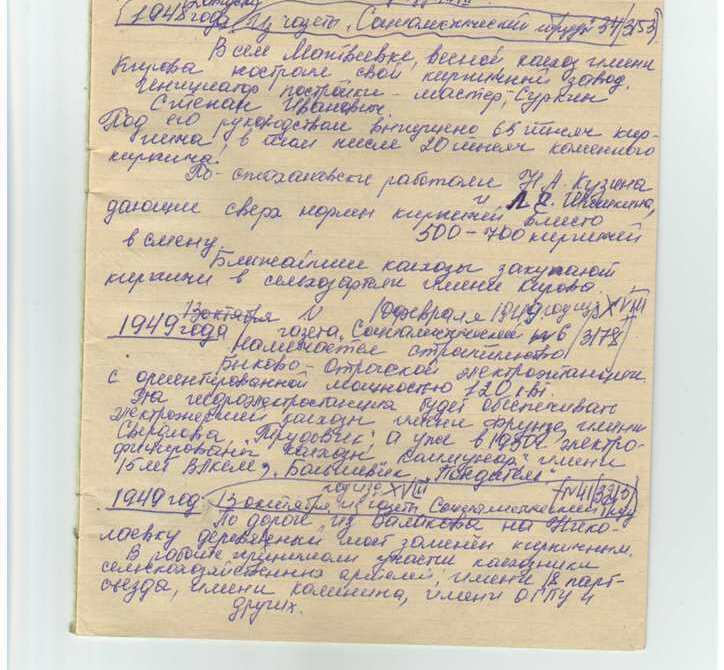 1948 года Из газеты „Социалистический труд" 34/3153
В селе Матвеевке, весной колхоз имени
Кирова построил свой кирпичный завод.
Инициатор постройки - мастер - Суркин
Степан Иванович
Под его руководством выпущено 65 тысяч кир-
пича, в том числе 20 тысяч каменного
кирпича.
По-стахановски работали Н.А. Кузина
и Л.Я.
дающие сверх нормы кирпичей вместо
500-700 кирпичей
в смену.
Ближайшие колхозы закупают
кирпичи в сельхозартели имени Кирова.
13 октября 10 февраля 1949 год изд XVIII
1949 года газета „Социалистический №6 /3178/
намечается строительство
Быково-Отрогской электростанции
с ориентированной мощностью 120 квт.
Эта гидроэлектростанция будет обеспечивать
электроэнергией колхозы имени Фрунзе, имени
Свердлова, „Трудовик", а уже в 1950г электро-
фицированы колхозы „Коммунар" имени
15 лет ВЛКСМ, „Большевик", „Победитель"
год изд XVIII
1949 год 13 октября из газеты Социалистический труд (№41/3213)
По дороге из Балакова на Нико-
лаевку деревянный мост заменён кирпичным.
В работе принимали участи колхозники
сельскохозяйственных артелей, имени 18 парт-
съезда, имени Калинина, имени ОГПУ и
других.